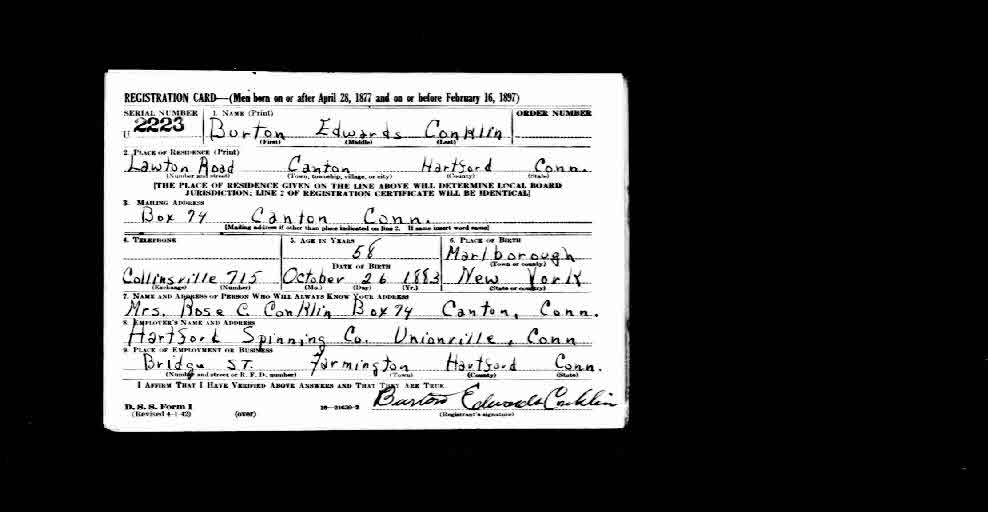 REGISTRATION CARD—(Men born on or after April 28, 1877 and on or before February 16, 1897)
SERIAL NUMBER 1. NAME (Print) ORDER NUMBER
U 2223 Burton Edwards Conklin
(First) (Middle) (Last)
2. PLACE OF RESIDENCE (Print)
Lawton Road Canton Hartford Conn.
(Number and street) (Town, township, village, or city) (County) (State)
[THE PLACE OF RESIDENCE GIVEN ON THE LINE ABOVE WILL DETERMINE LOCAL BOARD
JURISDICTION; LINE 2 OF REGISTRATION CERTIFICATE WILL BE IDENTICAL]
3. MAILING ADDRESS
Box 74 Canton Conn.
[Mailing address if other than place indicated on line 2. If same insert word same]
4. TELEPHONE 5. AGE IN YEARS 6. PLACE OF BIRTH
58 Marlborough
DATE OF BIRTH (Town or county)
Collinsville 715 October 26 1883 New York
(Exchange) (Number) (Mo.) (Day) (Yr.) (State or country)
7. NAME AND ADDRESS OF PERSON WHO WILL ALWAYS KNOW YOUR ADDRESS
Mrs. Rose C. Conklin Box 74 Canton, Conn.
8. EMPLOYER'S NAME AND ADDRESS
Hartford Spinning Co. Unionville, Conn
9. PLACE OF EMPLOYMENT OR BUSINESS
Bridge ST. Farmington Hartford Conn.
(Number and street or R. F. D. number) (Town) (County) (State)
I AFFIRM THAT I HAVE VERIFIED ABOVE ANSWERS AND THAT THEY ARE TRUE.
Burton Edwards Conklin
D. S. S. Form 1
(Revised 4-1-42) (over) 16—21630-2 (Registrant's signature)